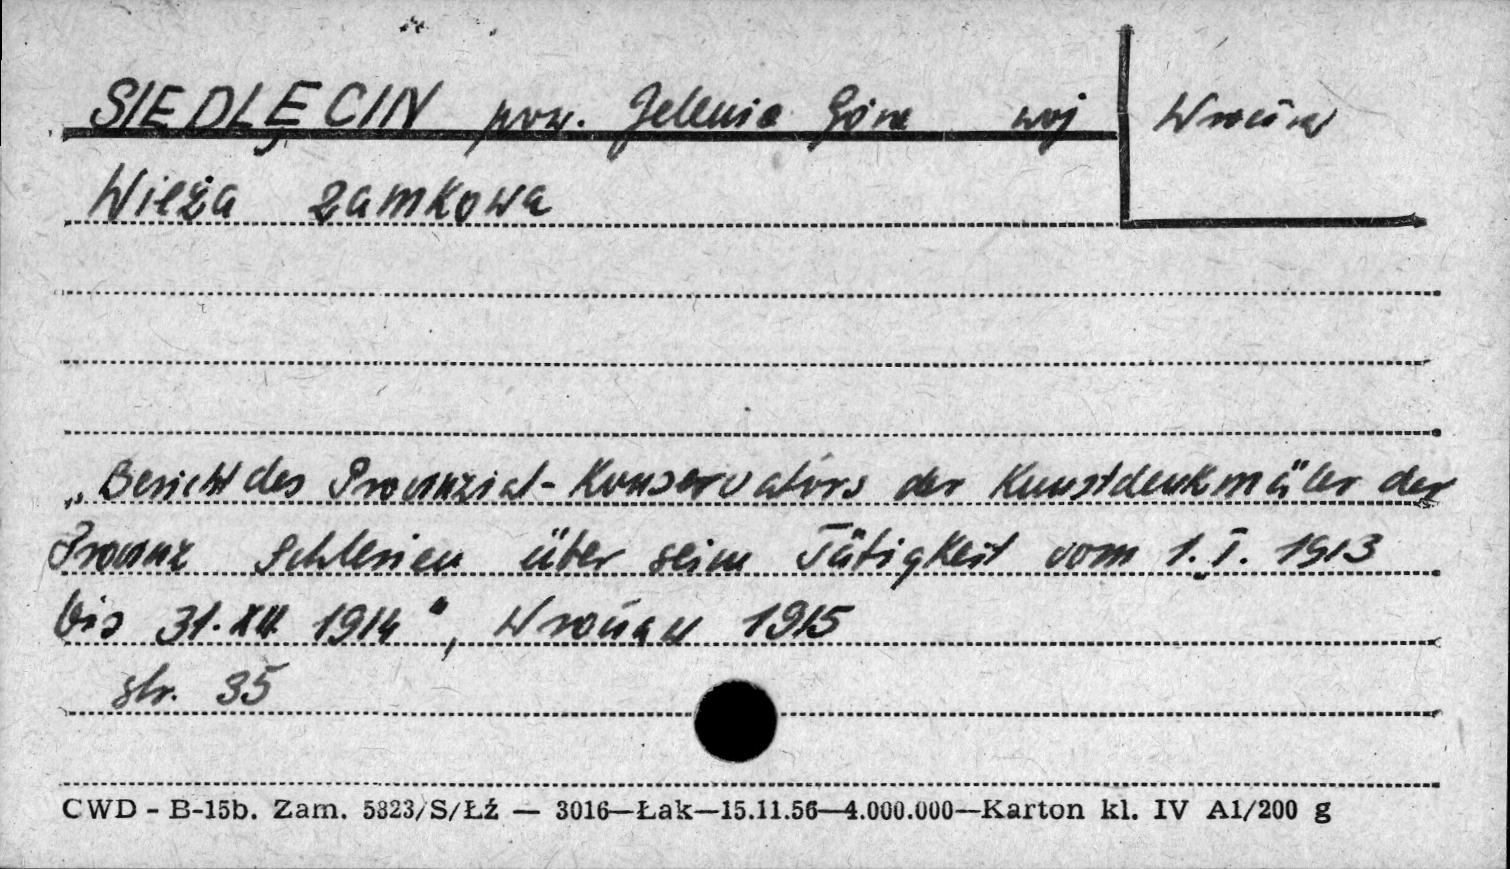 SIEDLĘCIN pow. Jelenia Góra woj Wrocław
Wieża zamkowa
„Bericht des Provinzial-Konservators der Kunstdenkmäler der
Provinz Schlesien über seine Tätigkeit vom 1.I. 1913
bis 31.XII. 1914", Wrocław 1915
str. 35
CWD - B-15b. Zam. 5823/S/Łź — 3016—Łak—15.11.56—4.000.000—Karton kl. IV A1/200 g